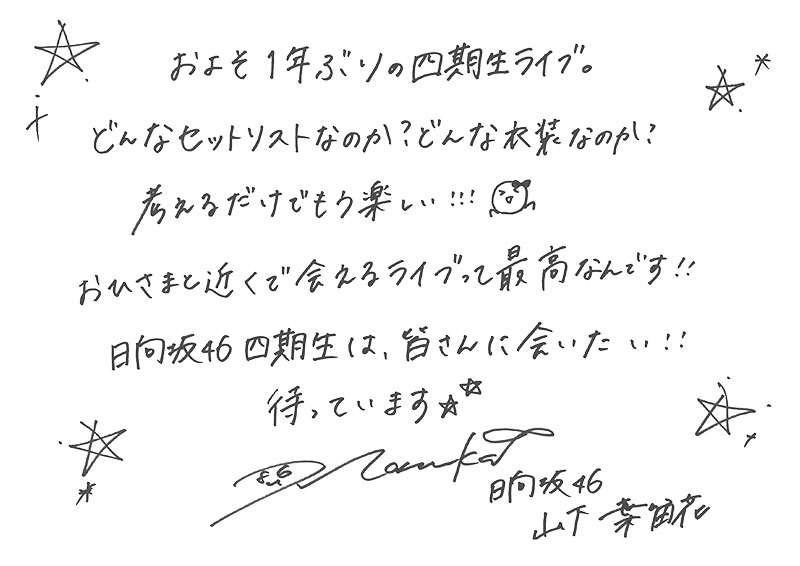 およそ1年ぶりの四期生ライブ。
どんなセットリストなのか?どんな衣装なのか?
考えるだけでもう楽しい!!!
おひさまと近くで会えるライブって最高なんです!!
日向坂46四期生は、皆さんに会いたい!!
待っています☆☆
日向坂46
山下葉留花